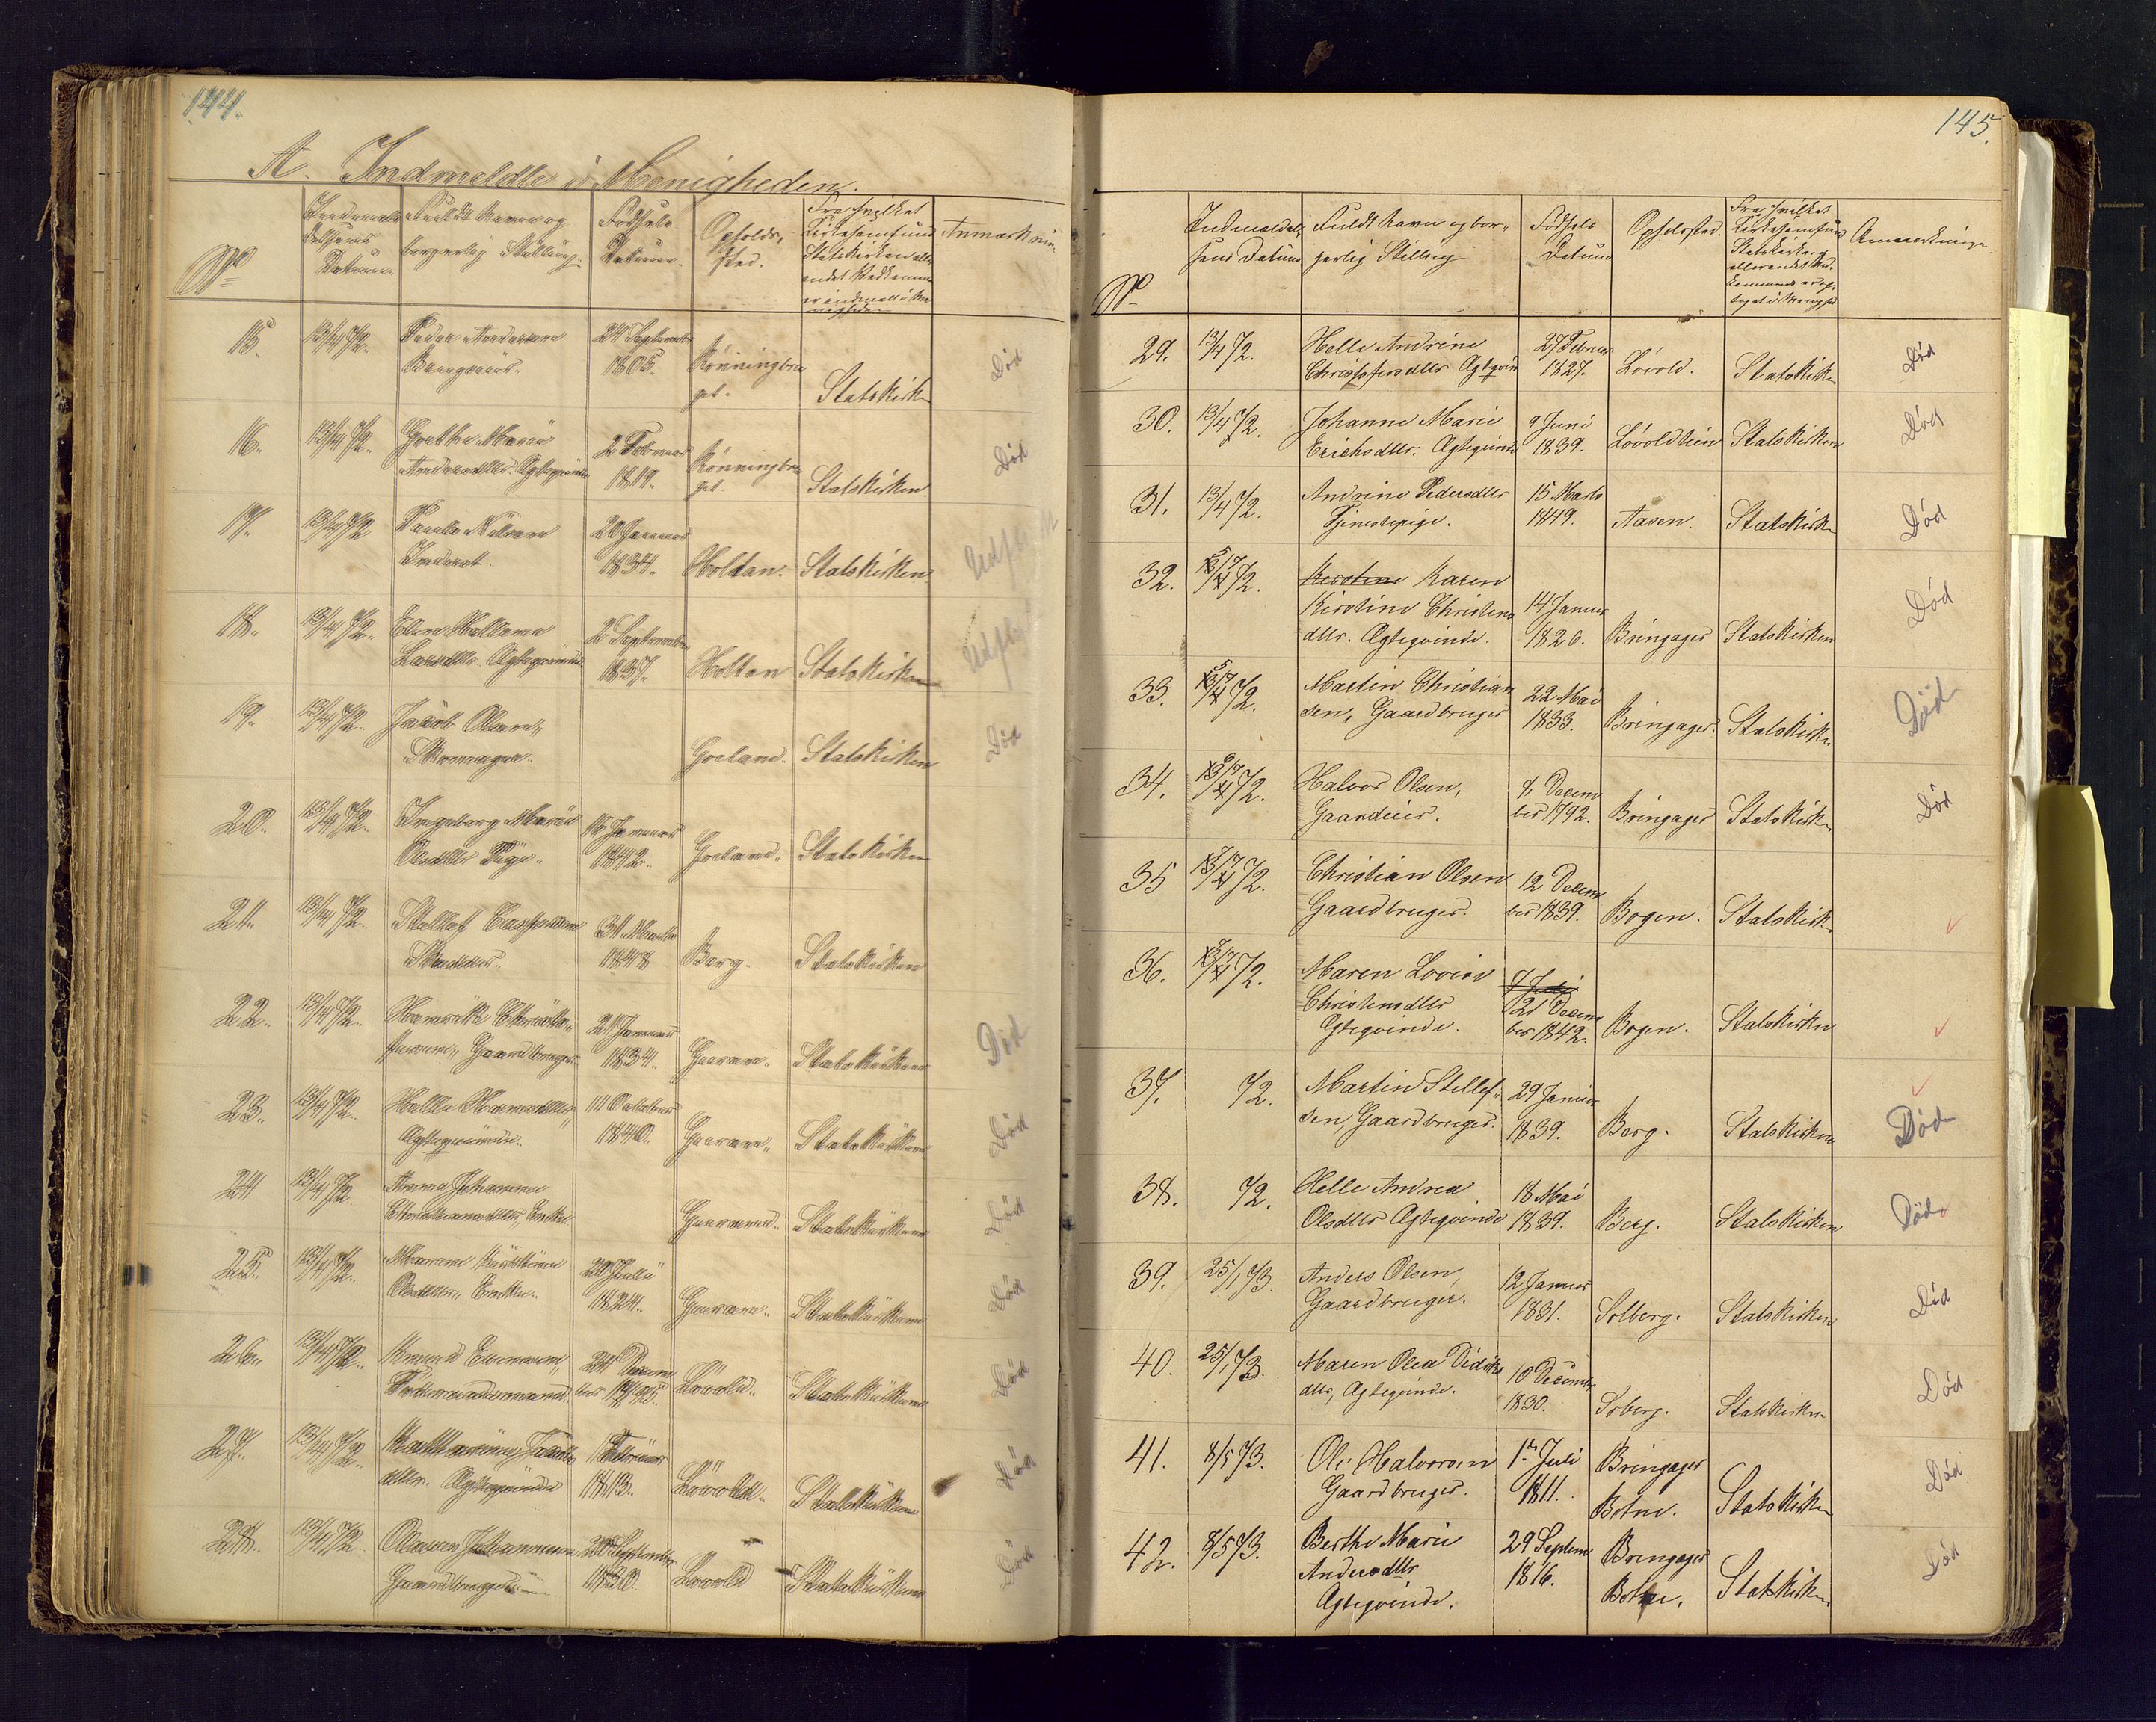 144.
A. Indmeldte i Menigheden.
No
Indmeldelsens Datum
Fuldt Navn og borgerlig Stilling.
Fødsels Datum.
Opholdssted.
Fra hvilket Kirkesamfund
Anmærknin
15. 13/4 72. Peder Andersen 24 September 1805. Rønningbræget. Statskirken Død
16. 13/4 72. Grethe Marie Andersdtr. Agtegvinde 2 Februar 1819. Rønningbræget. Statskirken. Død
17. 13/4 72 Paul Nilsen Inderst. 20 Januar 1834. Holtan. Statskirken.
18. 13/4 72. Larsdtr. Agtegvinde 2 September 1837. Holtan Statskirken
19. 13/4 72. Jacob Olsen, Skomager. Goeland. Statskirken Død
20. 13/4 72. Ingeborg Marie Olsdtr Pige. 16 Januar 1842. Goeland. Statskirken
21. 13/4 72. Skrædder. 31 Marts 1848 Barg. Statskirken
22. 13/4 72. Gaardbruger. 21 Januar 1834. Gaaran. Statskirken Død
23. 13/4 72. Helle Agtegvinde. 11 October 1840. Gaaran. Statskirken Død
24 13/4 72. Anne Johanne Enke Gaaran. Statskirken Død
25. 13/4 72. Maren Kirstine Olsdtr, Enke. 20 Juli 1824. Gaaran. Statskirken Død
26. 13/4 72. Føderaadsmand. 24 December 1795. Løvold. Statskirken Død
27. 13/4 72. Kathrine Jacobsdtr. Agtegvinde 1 Februar 1813. Løvold. Statskirken Død
28. 13/4 72. Johannesen Gaardbruger 20 September 1830. Løvold Statskirken Død
145.
No
Indmeldelsens Datum
Fuldt Navn og borgerlig Stilling
Fødsels Datum
Opholdssted.
Fra hvilket Kirkesamfund
Anmærkninger
29. 13/4 72. Helle Andrine Christofersdtr Agtgvin 27 Februar 1827. Løvold. Statskirken Død
30. 13/4 72. Johanne Marie Erichsdtr. Agtegvinde 9 Juni 1839. Løvoldteien Statskirken Død
31. 13/4 72. Andrine Pedersdtr Tjenestepige. 15 Marts 1849. Aasen. Statskirken Død
32. 5/7 72. Kirstine Karen Kirstine Christensdtr. Agtegvinde. 14 Januar 1820. Bringager Statskirken Død
33. 5/7 72. Martin Christiansen, Gaardbruger 22 Mai 1833. Bringager. Statskirken Død
34. 6/7 72. Halvor Olsen, Gaardeier. 8 December 1792. Bringager Statskirken Død
35 7/7 72. Christian Olsen Gaardbruger. 12 December 1839. Bogen. Statskirk.
36. 7/7 72. Maren Lovise Christensdtr Agtegvinde. 7 Juli 21 December 1842. Bogen. Statskirken
37. 72. Martin Stellefsen, Gaardbruger. 29 Januar 1839. Barg. Statskirken Død
38. 72. Helle Andrea Olsdtr Agtegvinde 18 Mai 1839. Berg. Statskirken Død
39. 25/1 73. Anders Olsen, Gaardbruger. 12 Januar 1831. Solberg. Statskirken Død
40. 25/1 73. Maren Olea Didriksdtr, Agtegvinde. 10 December 1830. Soberg. Statskirken Død
41. 8/5 73. Ole Halvorsen Gaardbruger. 1ste Juli 1811. Bringager Botne. Statskirken Død
42. 8/5 73. Berthe Marie Andersdtr Agtegvinde. 29 Septem 1816. Bringager Botne. Statskirken Død